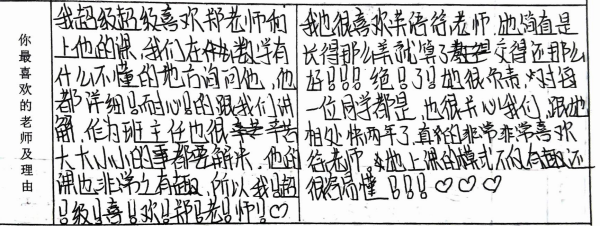 你最喜欢的老师及理由
我超级超级喜欢郑老师们
上他的课,我们在数学有
什么不懂的地方询问他,他
都详细!而耐心!的跟我们讲
解,作为班主任也很辛苦
大大小小的事都要解决,他的
课也非常之有趣,所以我!超
!级!喜!欢!郑!老!师!♡
我也很喜欢英语徐老师,她简直是
长得那么美就算了教得还那么
好!!!绝了!她很负责,对每
一位同学都是,也很关心我们,跟她
相处快两年了,真的非常非常喜欢
徐老师,她上课的模式不仅有趣还
很容易懂!!!♡♡♡